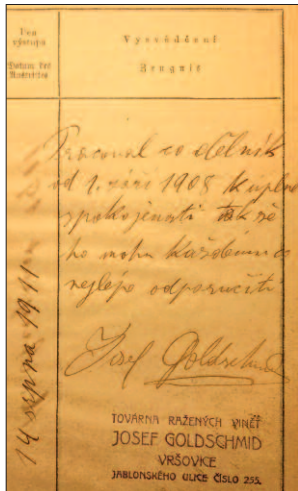 Den
výstupu
Datum des
Austrittes
Vysvědčení
Zeugniß
Pracoval co dělník
od 1. září 1908 k úplné
spokojenosti tak že
ho mohu každému co
nejlépe odporučiti
Josef Goldschmid
14 srpna 1911
TOVÁRNA RAŽENÝCH VINĚT
JOSEF GOLDSCHMID
VRŠOVICE
JABLONSKÉHO ULICE ČÍSLO 255.